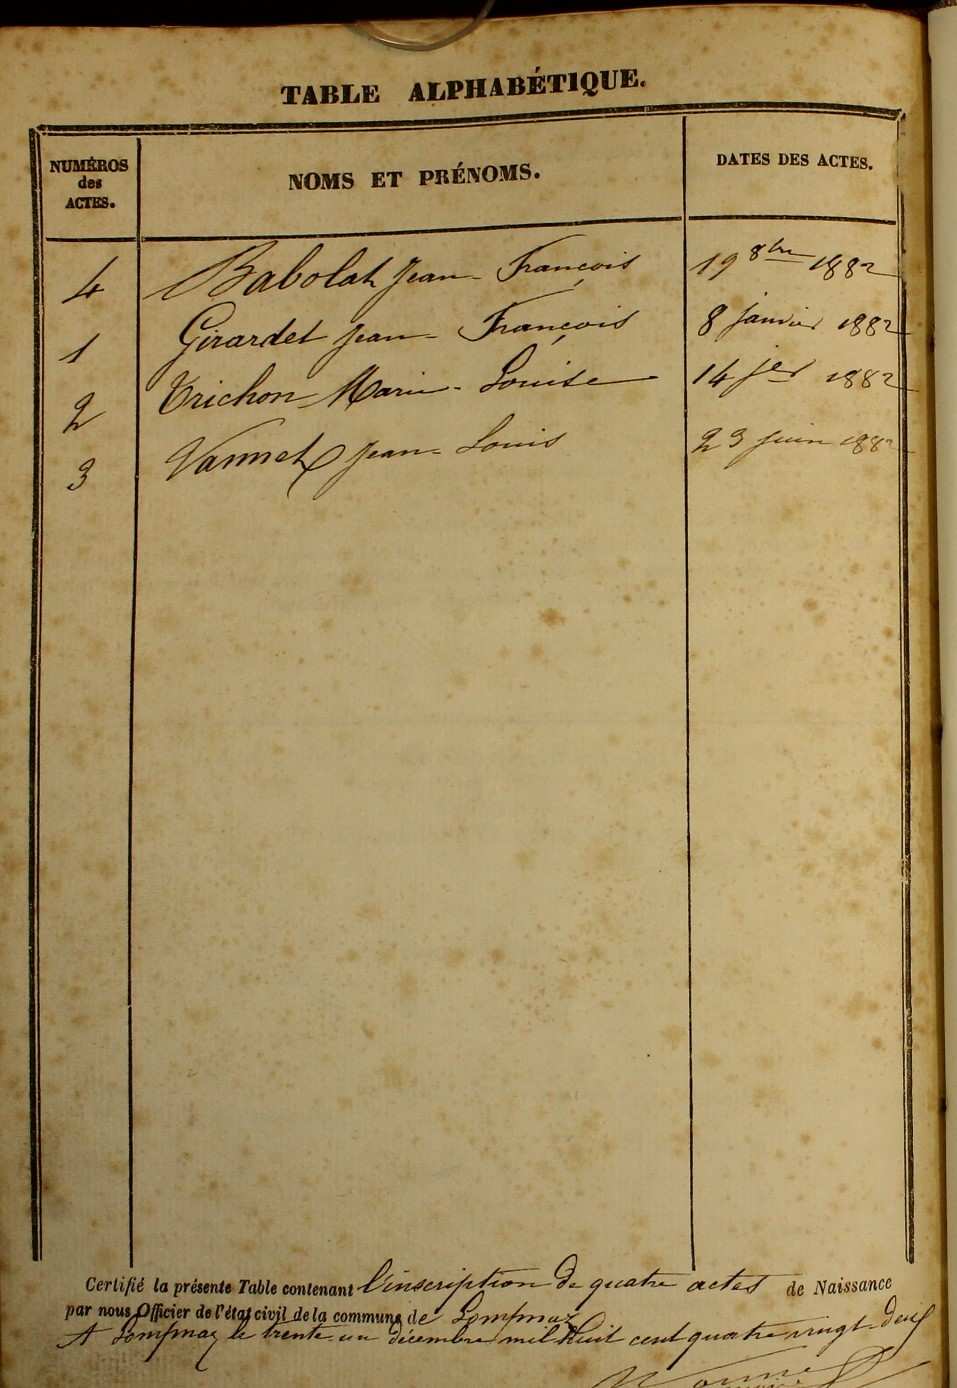 TABLE ALPHABÉTIQUE.
NUMÉROS
des
ACTES.
NOMS ET PRÉNOMS.
DATES DES ACTES.
4 Babolat Jean-François 19 8bre 1882
1 Girardet Jean-François 8 janvier 1882
2 Trichon Marie-Louise 14 jer 1882
3 Vannet Jean-Louis 23 juin 1882
Certifié la présente Table contenant l'inscription de quatre actes de Naissance
par nous Officier de l'état civil de la commune de
A le trente-un décembre mil huit cent quatre vingt-deux